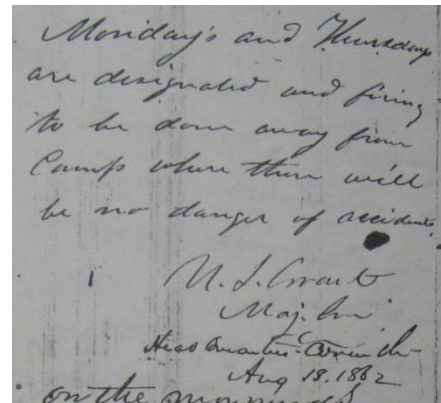 Monday's and Thursdays
are designated and firing
to be done away from
Camp where there will
be no danger of accidents.
U. S. Grant
Maj. Gen
Head Quarters Corinth
Aug 18. 1862
on the